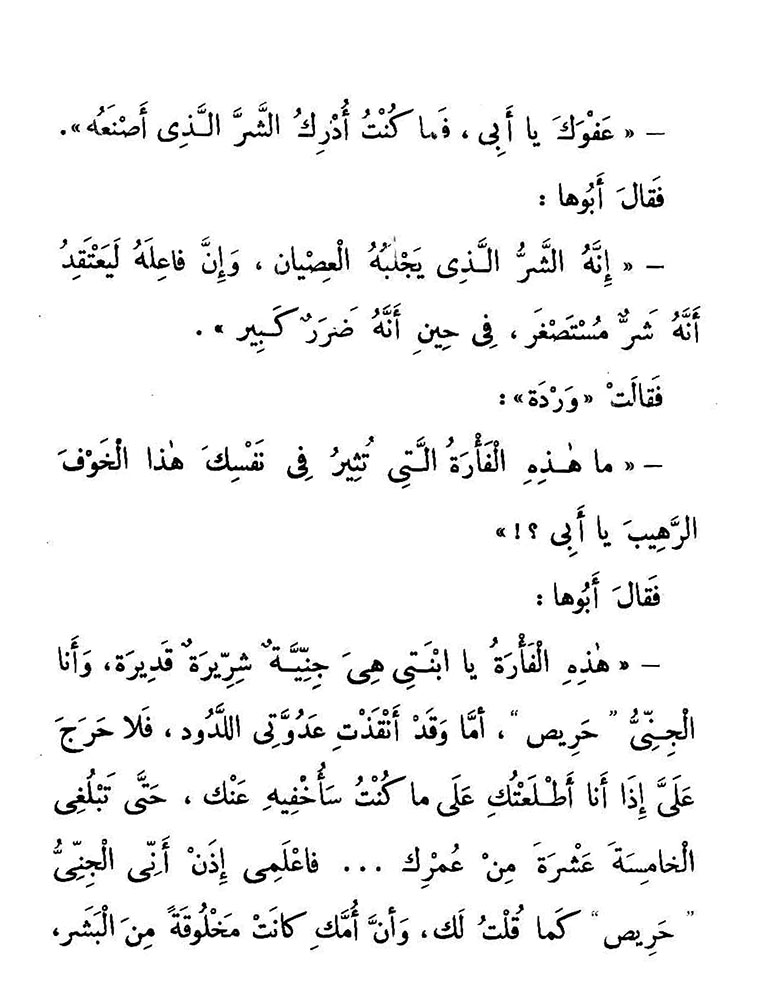 – « عَفْوَكَ يا أَبِى ، فَما كُنْتُ أُدْرِكُ الشَّرَّ الَّذِى أَصْنَعُه » .
فَقالَ أَبُوها :
– « إِنَّهُ الشَّرُّ الَّذِى يَجْلُبُهُ الْعِصْيان ، وَإِنَّ فاعِلَهُ لَيَعْتَقِدُ
أَنَّهُ شَرٌّ مُسْتَصْغَر ، فِى حِينِ أَنَّهُ ضَرَرٌ كَبِير » .
فَقالَتْ « وَرْدَة » :
– « ما هٰذِهِ الْفَأْرَةُ الَّتِى تُثِيرُ فِى نَفْسِكَ هٰذا الْخَوْفَ
الرَّهِيبَ يا أَبِى ؟! »
فَقالَ أَبُوها :
– « هٰذِهِ الْفَأْرَةُ يا ابْنَتِى هِىَ جِنِّيَّةٌ شِرِّيرَةٌ قَدِيرَة، وَأَنا
الْجِنِّىُّ ” حَرِيص “ ، أمَّا وَقَدْ أَنْقَذْتِ عَدُوَّتِى اللَّدُود ، فَلا حَرَجَ
عَلَىَّ إِذَا أَنا أَطْلَعْتُكِ عَلَى ما كُنْتُ سَأُخْفِيهِ عَنْك ، حَتَّى تَبْلُغِى
الْخامِسَةَ عَشْرَةَ مِنْ عُمْرِك ... فاعْلَمِى إِذَنْ أَنِّى الْجِنِّىُّ
” حَرِيص “ كَما قُلْتُ لَك، وَأَنَّ أُمَّكِ كانَتْ مَخْلُوقَةً مِنَ الْبَشَر،